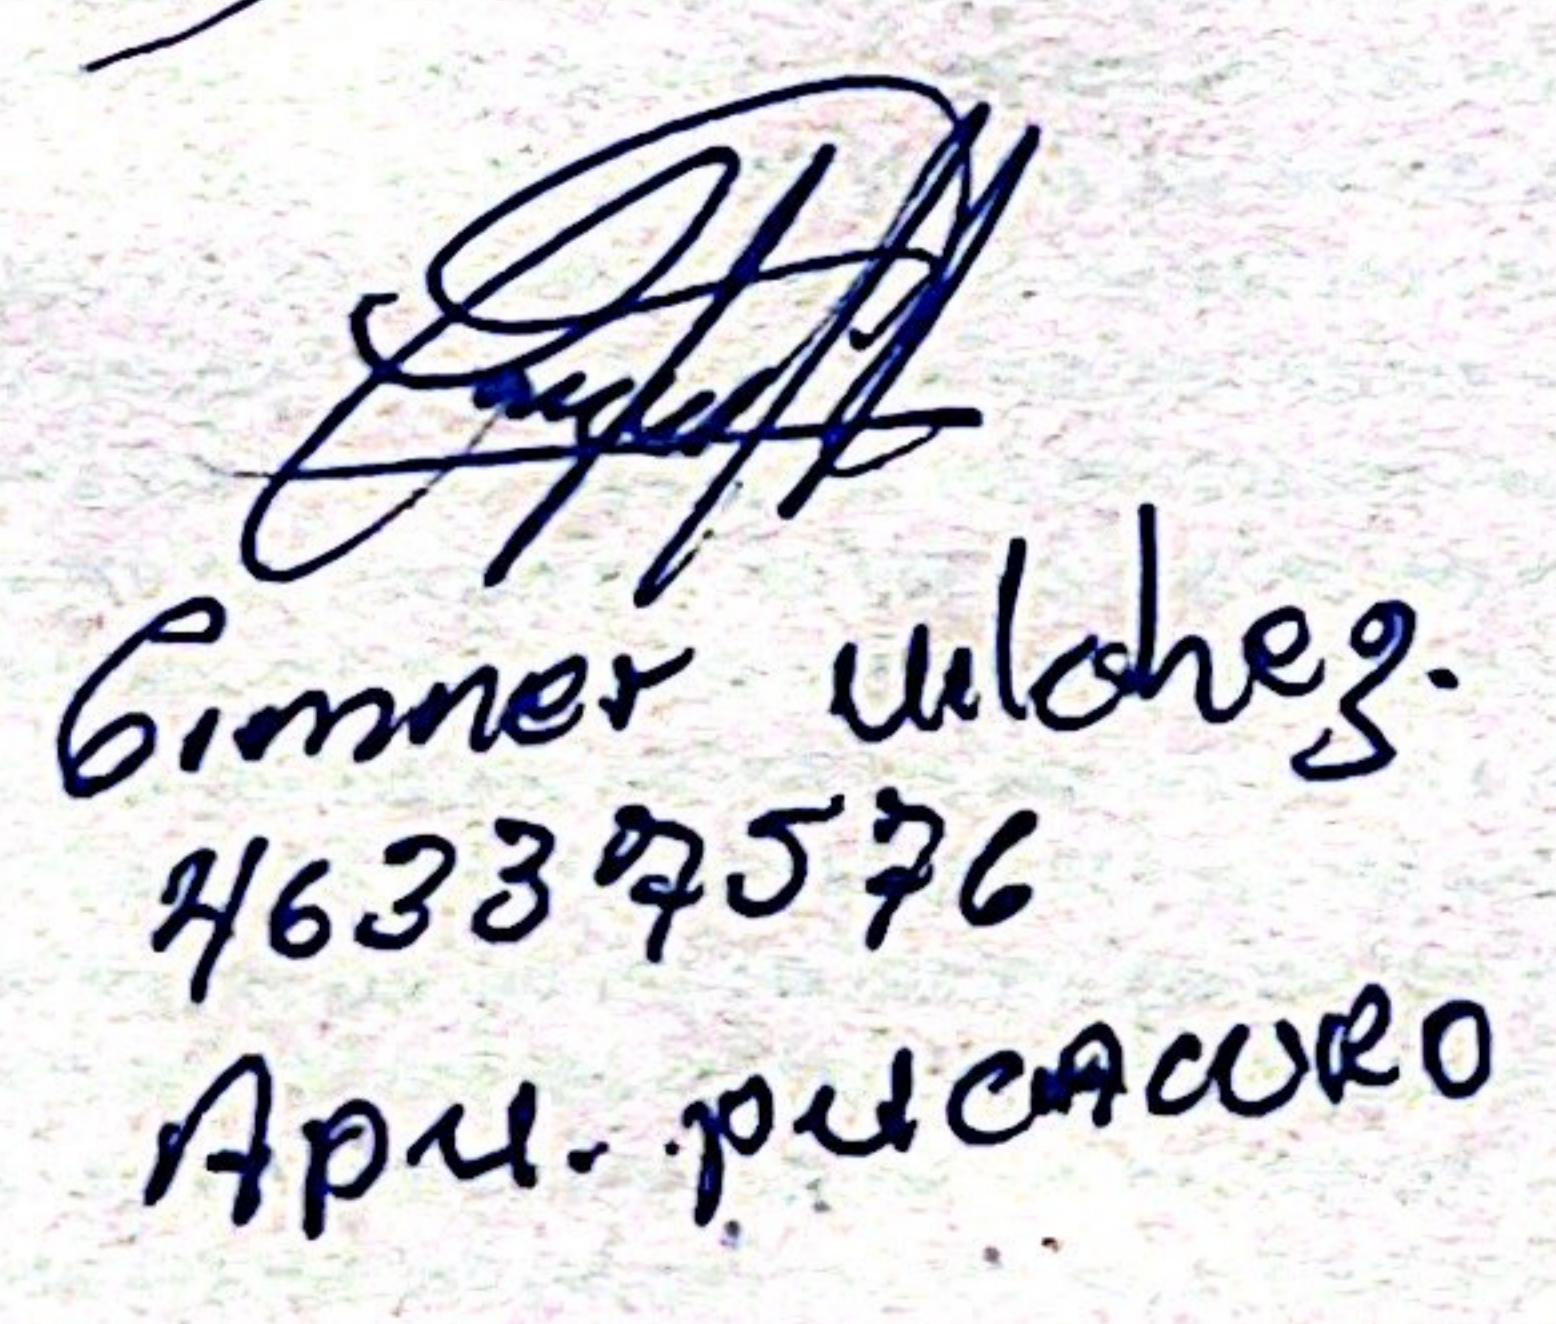 Gimner Vilchez.
46337576
Apu. pucacuro